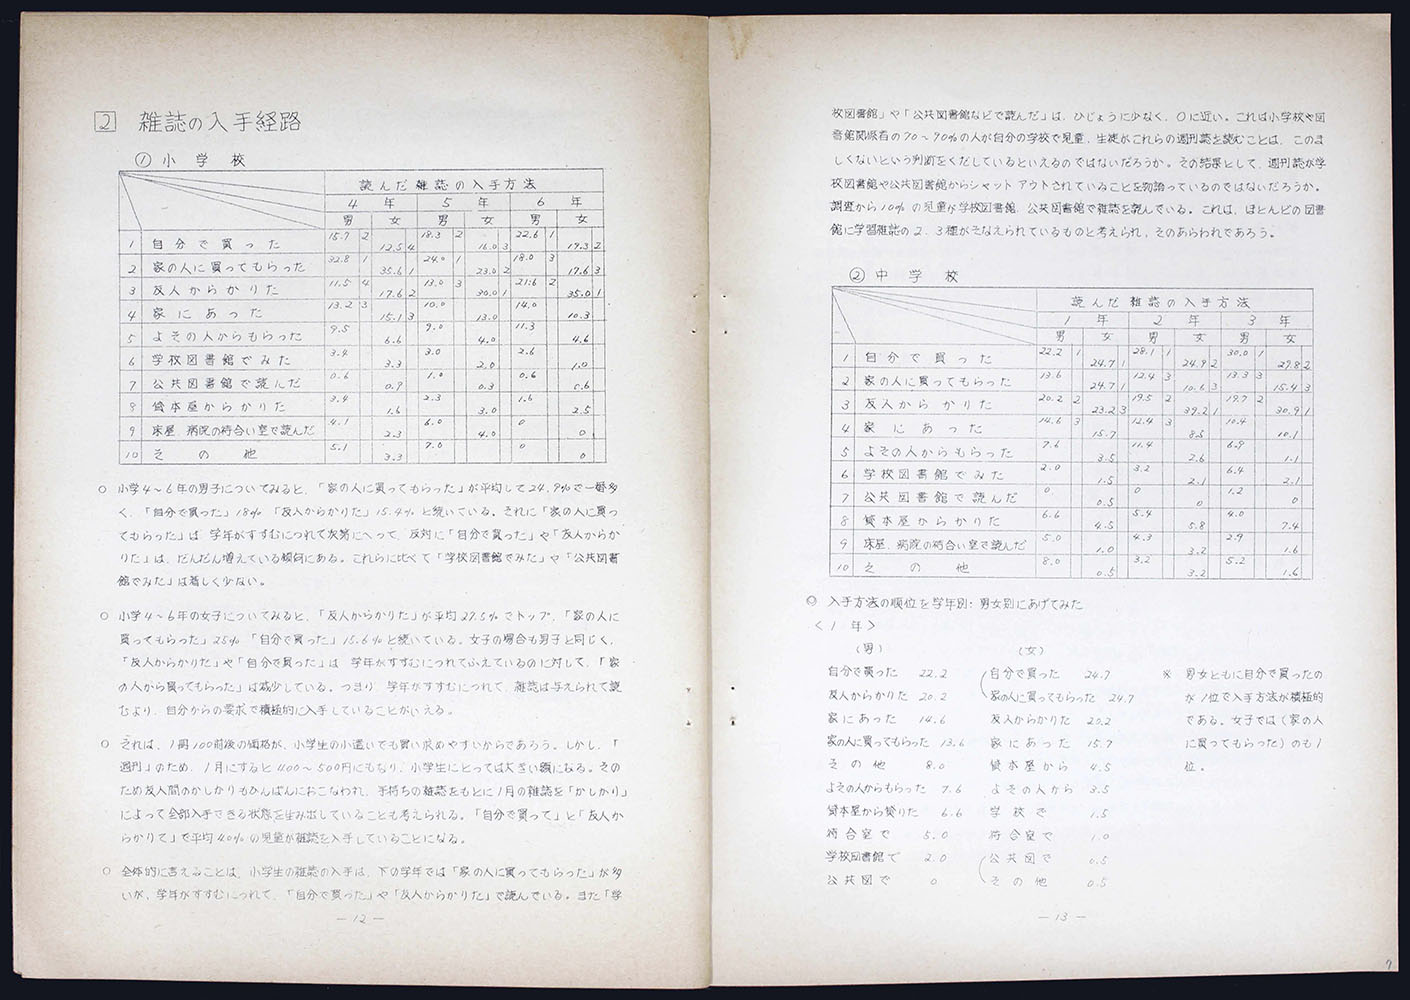 2 雑誌の入手経路
① 小学校
読んだ雑誌の入手方法
4年 5年 6年
男 女 男 女 男 女
1 自分で買った 15.7 2 12.5 4 18.3 2 16.0 3 22.6 1 19.3 2
2 家の人に買ってもらった 32.8 1 35.6 1 24.0 1 23.0 2 18.0 3 17.6 3
3 友人からかりた 11.5 4 17.6 2 13.0 3 30.0 1 21.6 2 35.0 1
4 家にあった 13.2 3 15.1 3 10.0 13.0 14.0 10.3
5 よその人からもらった 9.5 6.6 9.0 4.0 11.3 4.6
6 学校図書館でみた 3.4 3.3 3.0 2.0 2.6 1.0
7 公共図書館で読んだ 0.6 0.9 1.0 0.3 0.6 0.6
8 貸本屋からかりた 3.4 1.6 2.3 3.0 1.6 2.5
9 床屋、病院の待合い室で読んだ 4.1 2.3 6.0 4.0 0 0
10 その他 5.1 3.3 7.0 0 0
○ 小学4~6年の男子についてみると、「家の人に買ってもらった」が平均して24.9%で一番多
く、「自分で買った」18% 「友人からかりた」15.4%と続いている。それに「家の人に買っ
てもらった」は 学年がすすむにつれて次第にへって、反対に「自分で買った」や「友人からか
りた」は、だんだん増えている傾向にある。これらに比べて「学校図書館でみた」や「公共図書
館でみた」は着しく少ない。
○ 小学4~6年の女子についてみると、「友人からかりた」が平均27.5%でトップ、「家の人に
買ってもらった」25% 「自分で買った」15.6%と続いている。女子の場合も男子と同じく、
「友人からかりた」や「自分で買った」は 学年がすすむにつれてふえているのに対して、「家
の人から買ってもらった」は減少している。つまり、学年がすすむにつれて、雑誌は与えられて読
むより、自分からの要求で積極的に入手していることがいえる。
○ それは、1冊100前後の価格が、小学生の小遣いでも買い求めやすいからであろう。しかし、「
週刊」のため、1月にすると400~500円にもなり、小学生にとっては大きい額になる。その
ため友人間のかしかりもひんぱんにおこなわれ、手持ちの雑誌をもとに1月の雑誌を「かしかり」
によって全部入手できる状態を生み出していることも考えられる。「自分で買って」と「友人か
らかりて」で平均40%の児童が雑誌を入手していることになる。
○ 全体的に言えることは、小学生の雑誌の入手は、下の学年では「家の人に買ってもらった」が多
いが、学年がすすむにつれて、「自分で買った」や「友人からかりた」で読んでいる。また「学
— 12 —
校図書館」や「公共図書館などで読んだ」は、ひじょうに少なく、0に近い。これは小学校や図
書館関係者の70~90%の人が自分の学校で児童、生徒がこれらの週刊誌を読むことは、このま
しくないという判断をくだしているといえるのではないだろうか。その結果として、週刊誌が学
校図書館や公共図書館からシャットアウトされていることを物語っているのではないだろうか。
調査から10%の児童が学校図書館、公共図書館で雑誌を読んでいる。これは、ほとんどの図書
館に学習雑誌の2、3種がそなえられているものと考えられ、そのあらわれであろう。
② 中学校
読んだ雑誌の入手方法
1年 2年 3年
男 女 男 女 男 女
1 自分で買った 22.2 1 24.7 1 28.1 1 24.9 2 30.0 1 29.8 2
2 家の人に買ってもらった 13.6 24.7 1 12.4 3 10.6 3 13.3 3 15.4 3
3 友人からかりた 20.2 2 23.2 3 19.5 2 39.2 1 19.7 2 30.9 1
4 家にあった 14.6 3 15.7 12.4 3 8.5 10.4 10.1
5 よその人からもらった 7.6 3.5 11.4 2.6 6.9 1.1
6 学校図書館でみた 2.0 1.5 3.2 2.1 6.4 2.1
7 公共図書館で読んだ 0 0.5 0 0 1.2 0
8 貸本屋からかりた 6.6 4.5 5.4 5.8 4.0 7.4
9 床屋、病院の待合い室で読んだ 5.0 1.0 4.3 3.2 2.9 1.6
10 その他 8.0 0.5 3.2 3.2 5.2 1.6
◎ 入手方法の順位を学年別:男女別にあげてみた
<1年>
(男) (女)
自分で買った 22.2 自分で買った 24.7 ※ 男女ともに自分で買ったの
友人からかりた 20.2 家の人に買ってもらった 24.7 が1位で入手方法が積極的
家にあった 14.6 友人からかりた 20.2 である。女子では(家の人
家の人に買ってもらった 13.6 家にあった 15.7 に買ってもらった)のも1
その他 8.0 貸本屋から 4.5 位。
よその人からもらった 7.6 よその人から 3.5
貸本屋から借りた 6.6 学校で 1.5
待合室で 5.0 待合室で 1.0
学校図書館で 2.0 公共図で 0.5
公共図で 0 その他 0.5
— 13 —
7